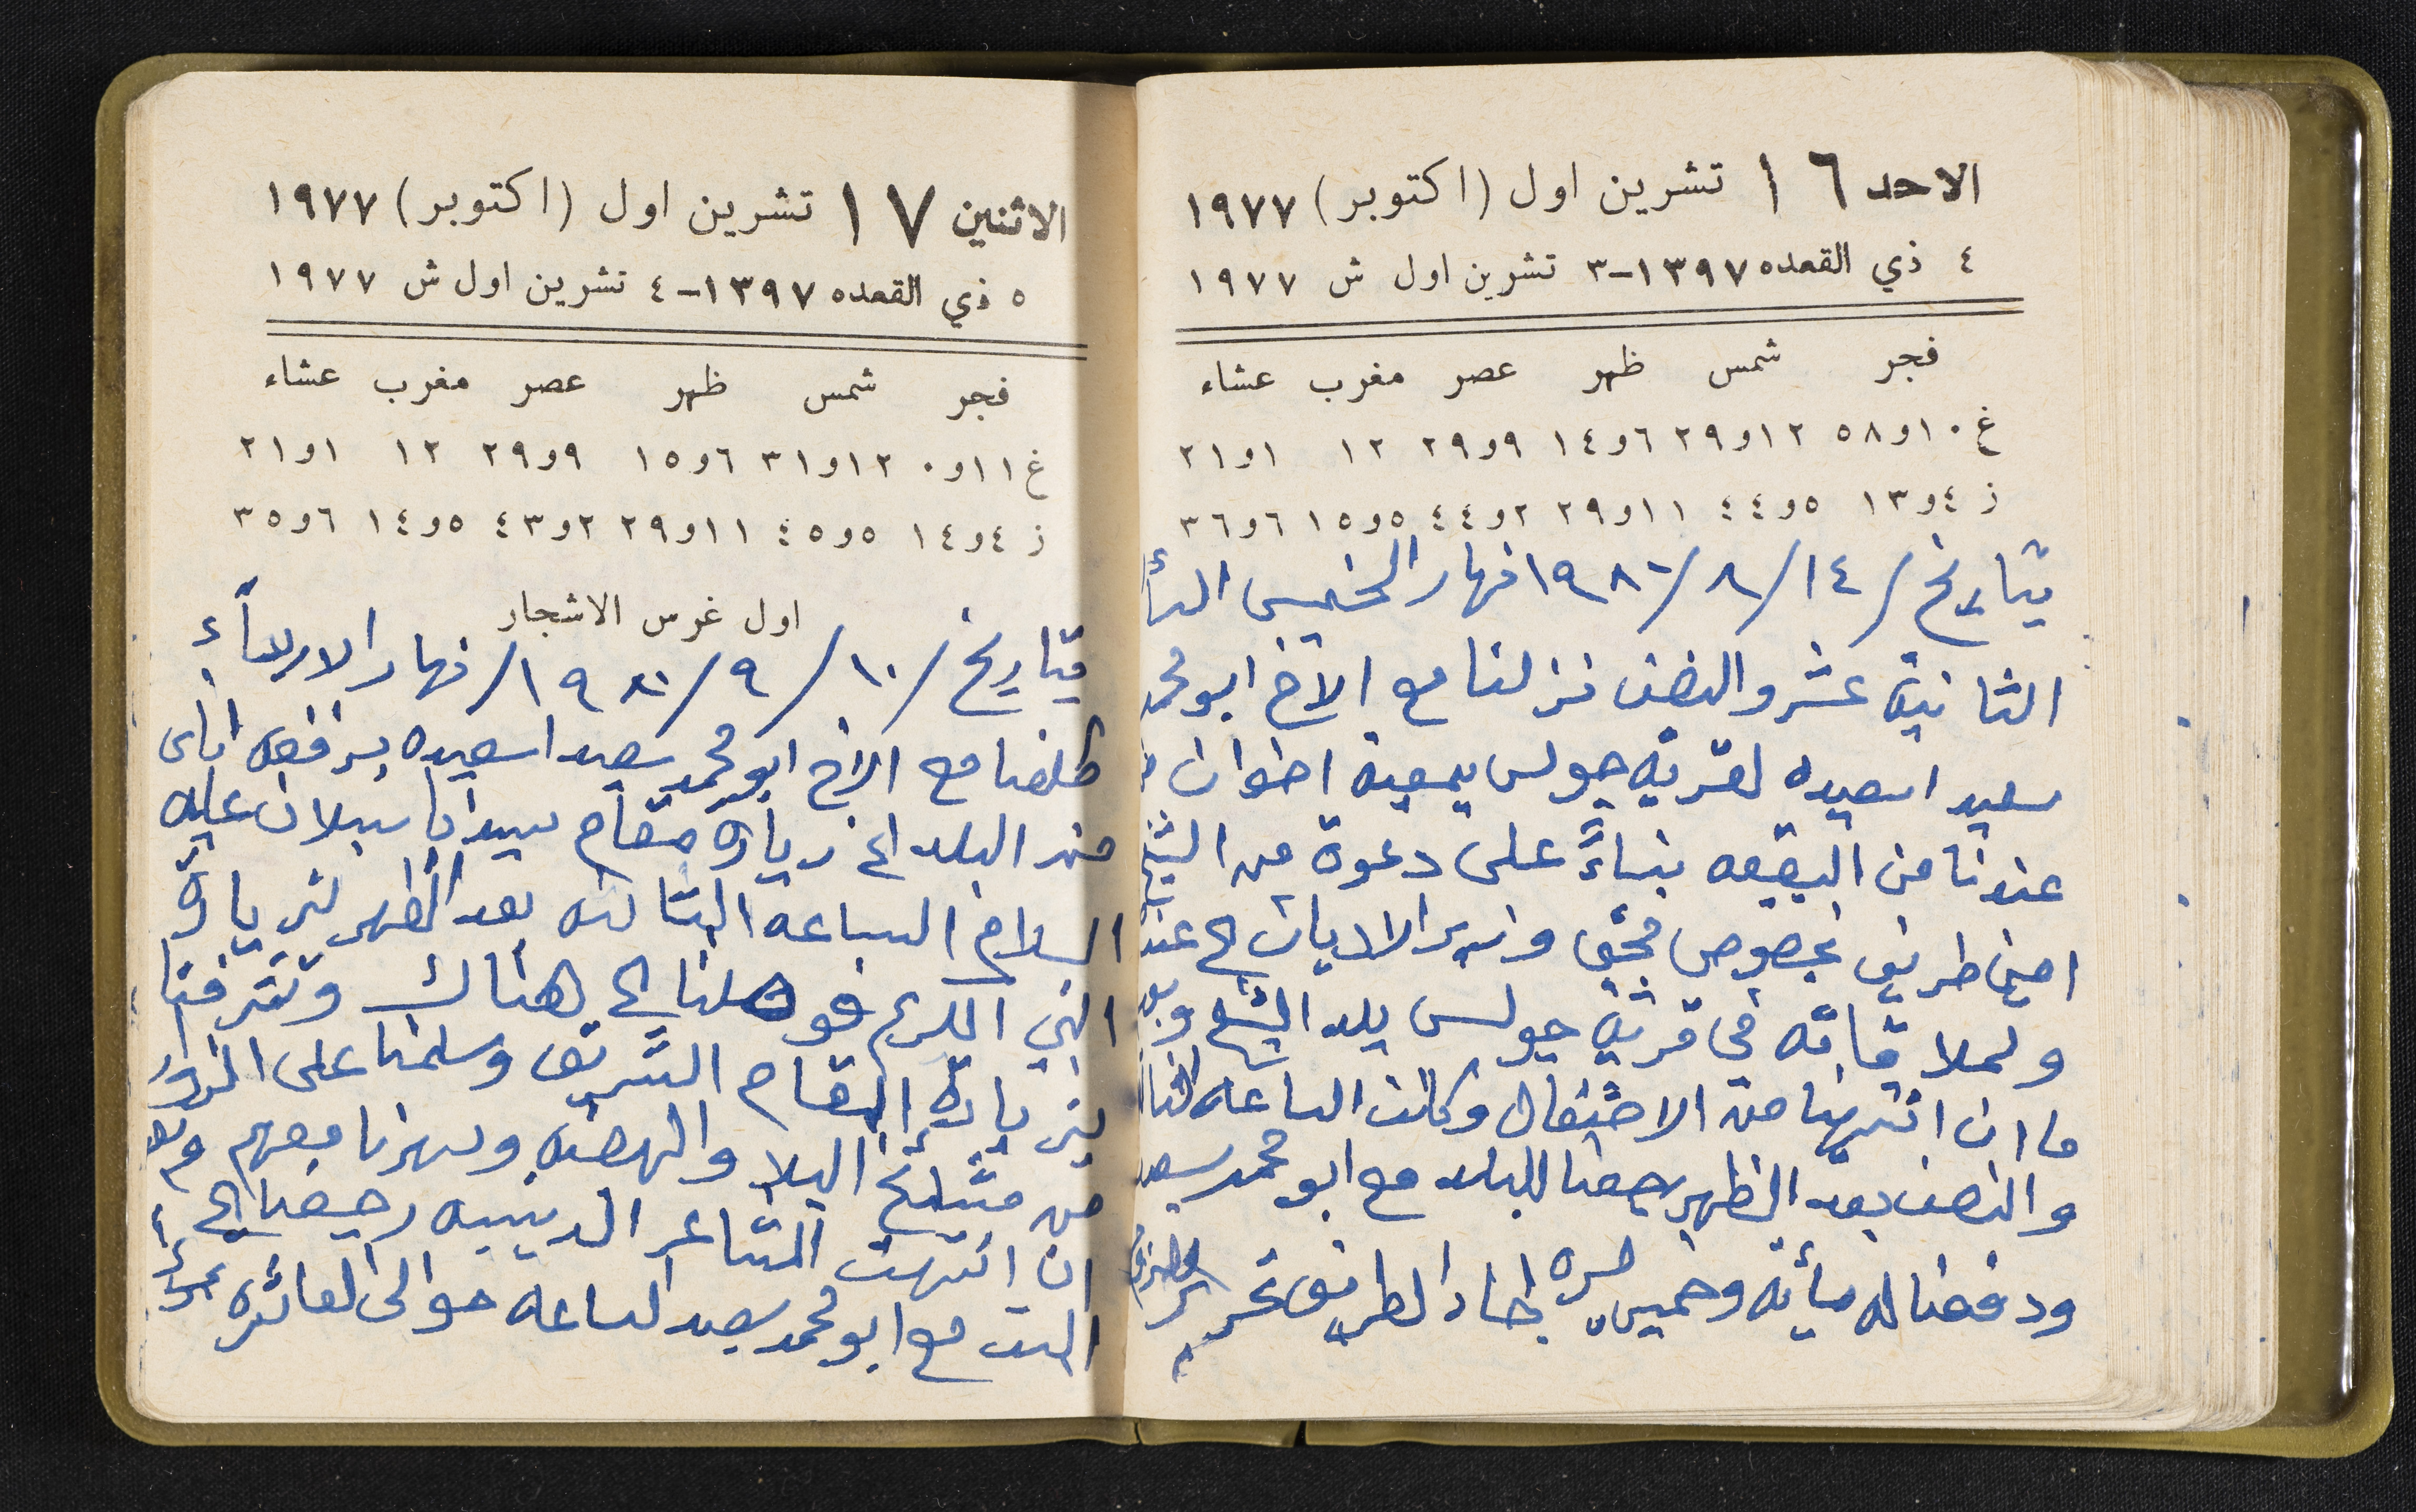 الاحد ١٦ تشرين اول (اكتوبر) ١٩٧٧
٤ ذي القعده ١٣٩٧-٣ تشرين اول ش ١٩٧٧
فجر شمس ظهر عصر مغرب عشاء
غ ١٠و٥٨ ١٢و٢٩ ٦و١٤ ٩و٢٩ ١٢ ١و٢١
ز ٤و١٣ ٥و٤٤ ١١و٢٩ ٢و٤٤ ٥و١٥ ٦و٣٦
بتاريخ /١٤/٨/١٩٨٠ نهار الخميس السا
الثانية عشر والنصف نزلنا مع الاخ ابو محمد
سعيد اسعيده لقرية جولس بمعية اخوان
عندنا من البقيعه بناءً على دعوة من الشيخ
امين طريف بخصوص مجئ وزير الاديان الى عنده
ولملاقاته في قرية جولس بلد الشيخ وبعد
ما ان انتهينا من الاحتفال وكانت الساعه الثا
والنصف بعد الظهر رجعنا للبلد مع ابو محمد سعيد
ودفعنا له مأيه وخمسين ليره اجار الطريق
الاثنين ١٧ تشرين اول (اكتوبر) ١٩٧٧
٥ ذي القعده ١٣٩٧-٤ تشرين اول ش ١٩٧٧
فجر شمس ظهر عصر مغرب عشاء
غ ١١و٠ ١٢و٣١ ٦و١٥ ٩و٢٩ ١٢ ١و٢١
ز ٤و١٤ ٥و٤٥ ١١و٢٩ ٢و٤٣ ٥و١٤ ٦و٣٥
اول غرس الاشجار
بتاريخ /١٠/٩/١٩٨٠/ نهار الاربعاء
طلعنا مع الاخ ابو محمد سعيد اسعيده برفقة اناس
من البلد الى زيارة مقام سيدنا سبلان عليه
السلام الساعه الثالثه بعد الظهر لزيارة
النبي الكريم فوصلنا الى هناك وتشرفنا
بزيارة المقام الشريف وسلمنا على الزوار
من مشايخ البلاد والهضبه وسهرنا معهم وبعد
ان انتهت المشاعر الدينيه رجعنا الى
البيت مع ابو محمد سعيد الساعه حوالى العاشره